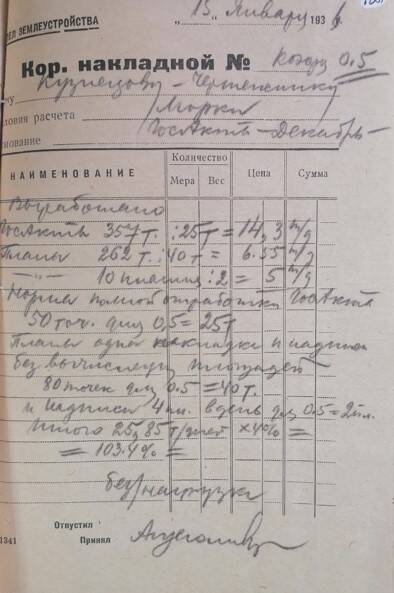 ЕЛ ЗЕМЛЕУСТРОЙСТВА
„15" Января 193
Кор. накладной № Коэфф 0.5
му Кузнецову – Чертежнику
словия расчета Марки
нование ГосАкты – Декабрь –
НАИМЕНОВАНИЕ Количество Мера Вес Цена Сумма
Выработано
ГосАкты 357 т. : 25 т = 14,3 т/д
Планы 262 т. : 40 т = 6.55 т/д
—"— 10 планш : 2 = 5 т/д
Норма выработки ГосАкта
50 точ. для 0,5 = 25 т
Планы одна накладка и надписи
без вычислений площадей
80 точек для 0.5 = 40 т.
и надписи 4 пл. в день для 0.5 = 2 пл.
Итого 25,85 т/дней × 4% =
= 103.4% =
без нагрузки
Отпустил
1341 Принял